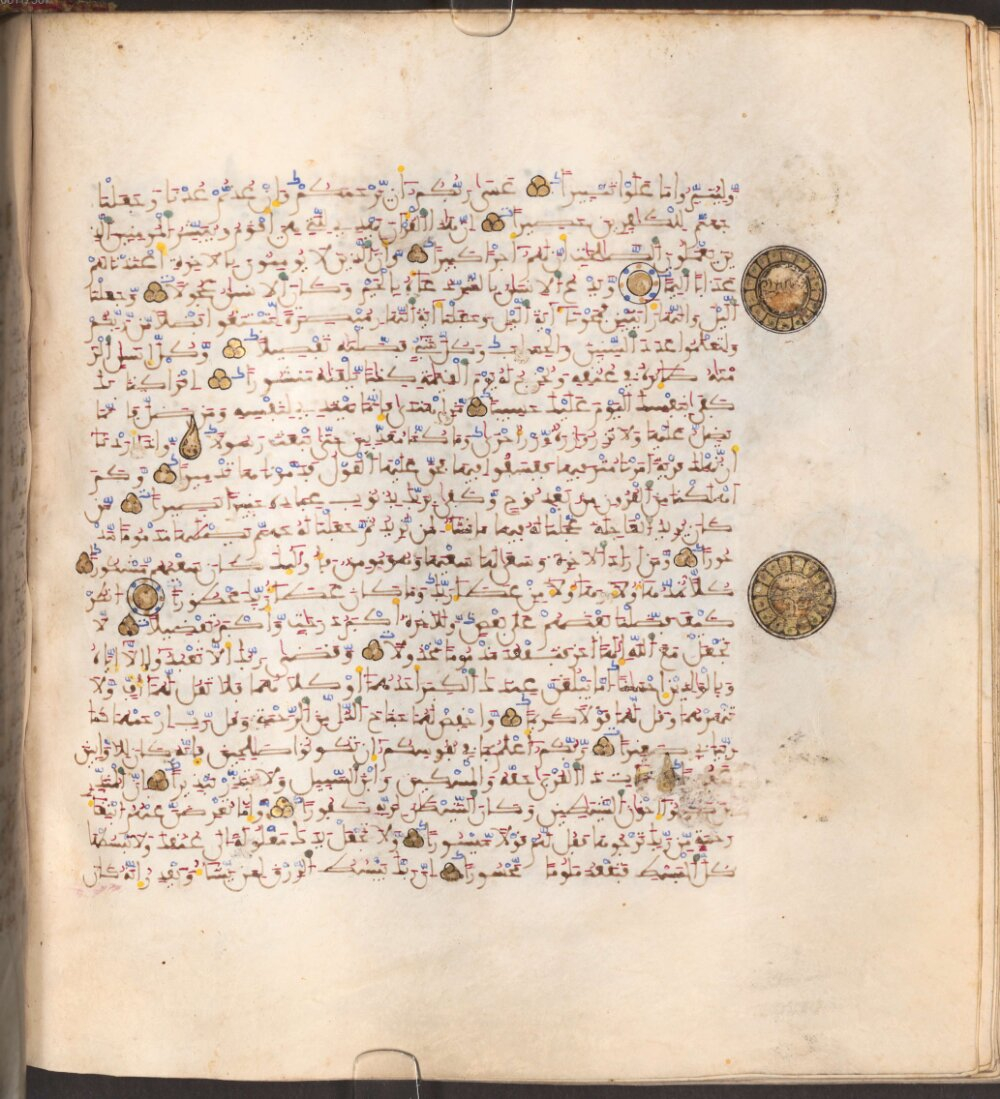 وليتبروا ما علوا تتبيرا عسى ربكم أن يرحمكم وإن عدتم عدنا وجعلنا
جهنم للكفرين حصيرا إن هذا القرءان يهدي للتي هي أقوم ويبشر المومنين الذ
ين يعملون الصلحت أن لهم أجرا كبيرا وأن الذين لا يومنون بالاخرة أعتدنا لهم
عذابا أليما ويدع الانسن بالشر دعاءه بالخير وكان الانسن عجولا وجعلنا
الليل والنهار ءايتين فمحونا ءاية الليل وجعلنا ءاية النهار مبصرة لتبتغوا فضلا من ربكم
ولتعلموا عدد السنين والحساب وكل شيء فصلنه تفصيلا وكل إنسن ألز
منه طئره في عنقه ونخرج له يوم القيمة كتبا يلقيه منشورا اقرأ كتبك
كفى بنفسك اليوم عليك حسيبا من اهتدى فإنما يهتدي لنفسه ومن ضل فإنما
يضل عليها ولا تزر وازرة وزر أخرى وما كنا معذبين حتى نبعث رسولا وإذا أردنا
أن نهلك قرية أمرنا مترفيها ففسقوا فيها فحق عليها القول فدمرنها تدميرا وكم
أهلكنا من القرون من بعد نوح وكفى بربك بذنوب عباده خبيرا بصيرا من
كان يريد العاجلة عجلنا له فيها ما نشاء لمن نريد ثم جعلنا له جهنم يصليها مذموما مد
حورا ومن أراد الاخرة وسعى لها سعيها وهو مومن فأولئك كان سعيهم مشكورا
كلا نمد هؤلاء وهؤلاء من عطاء ربك وما كان عطاء ربك محظورا انظر
كيف فضلنا بعضهم على بعض وللاخرة أكبر درجت وأكبر تفضيلا لا
تجعل مع الله إلها ءاخر فتقعد مذموما مخذولا وقضى ربك ألا تعبدوا إلا إياه
وبالولدين إحسنا إما يبلغن عندك الكبر أحدهما أو كلاهما فلا تقل لهما أف ولا
تنهرهما وقل لهما قولا كريما واخفض لهما جناح الذل من الرحمة وقل رب ارحمهما كما
ربيني صغيرا ربكم أعلم بما في نفوسكم إن تكونوا صلحين فإنه كان للاوابين
غفورا وءات ذا القربى حقه والمسكين وابن السبيل ولا تبذر تبذيرا إن المبذ
رين كانوا إخون الشيطين وكان الشيطن لربه كفورا وإما تعرضن عنهم ابتغاء
رحمة من ربك ترجوها فقل لهم قولا ميسورا ولا تجعل يدك مغلولة إلى عنقك ولا تبسطها
كل البسط فتقعد ملوما محسورا إن ربك يبسط الرزق لمن يشاء ويقدر إنه كان